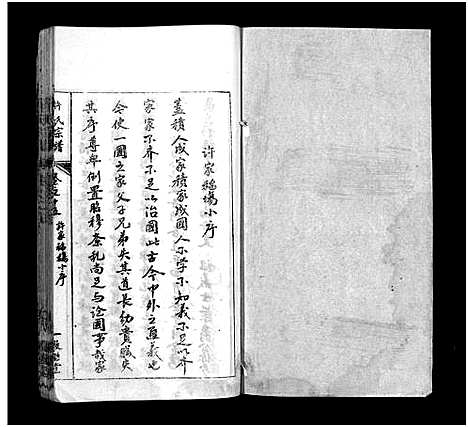 許家福塲小序
蓋積人成家積家成國人不學不知義不足以齊
家家不齊不足以治國此古今中外之通義也
今使一國之家父子兄弟失其道長幼貴賤失
其序尊卑倒置昭穆紊乱尚足与論國事哉我家
許氏宗譜
許家福塲小序